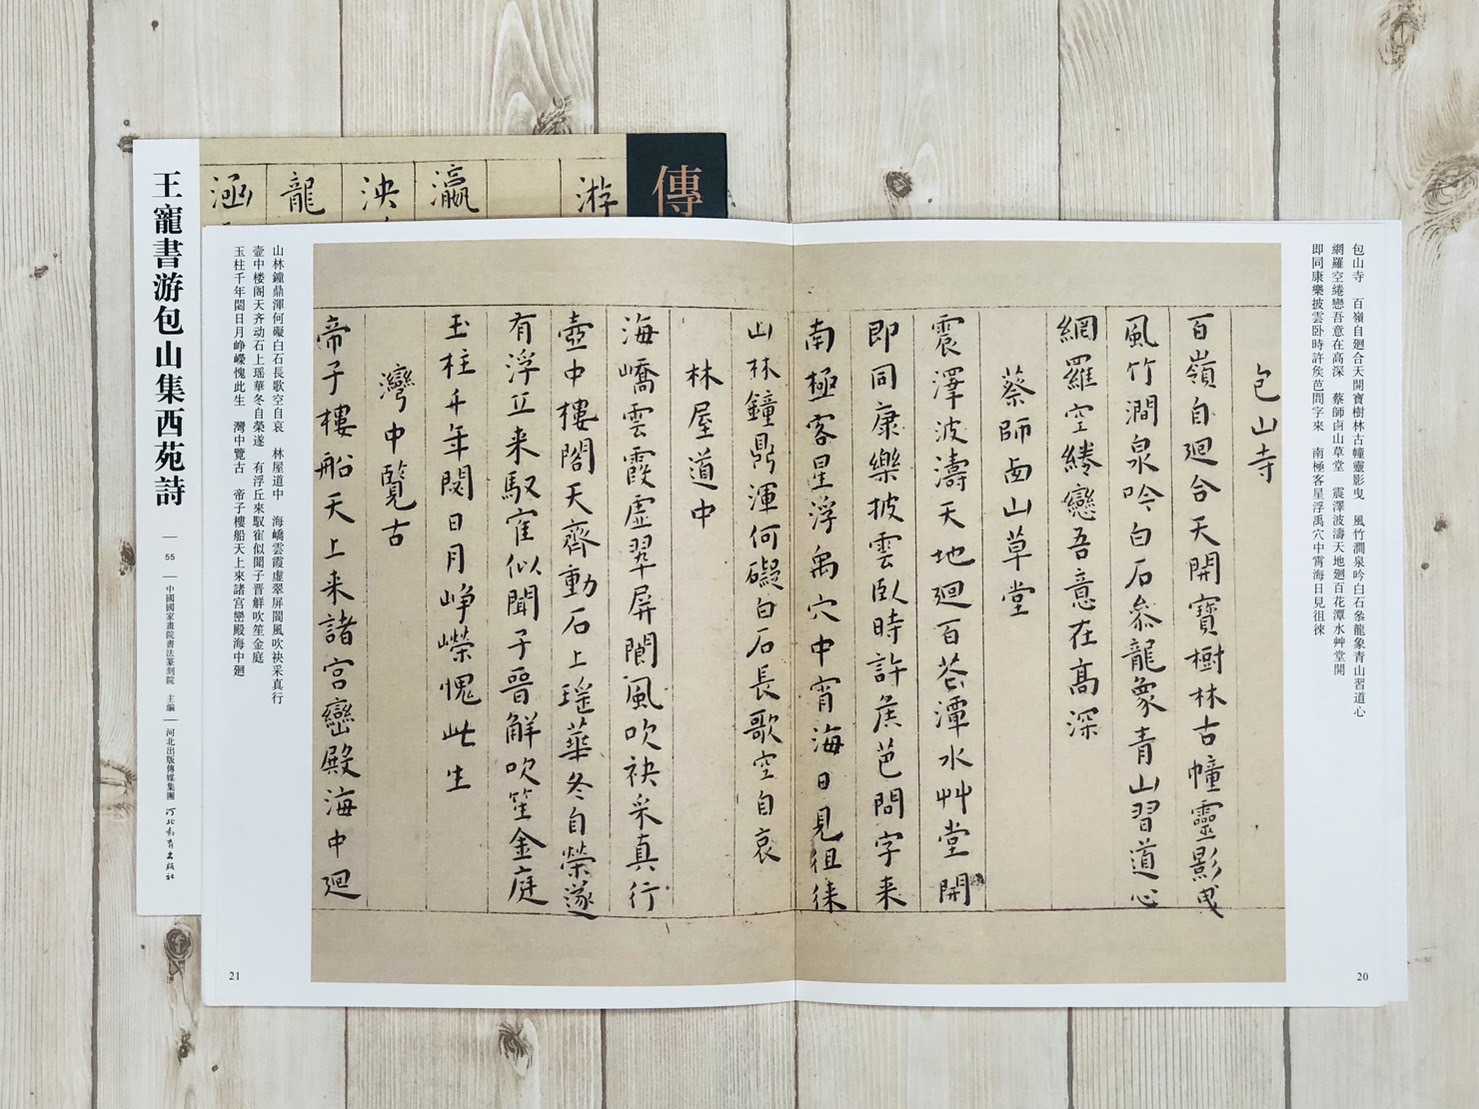 王寵書游包山集西苑詩
55
中國國家畫院書法篆刻院 主編
河北出版傳媒集團
河北教育出版社
傳
游
瀛
泱
龍
涵
包山寺 百嶺自廻合天開寶樹林古幢靈影曳 風竹澗泉吟白石叅龍象青山習道心
網羅空綣戀吾意在高深 蔡師卤山草堂 震澤波濤天地廻百花潭水艸堂開
即同康樂披雲卧時許矦芭問字來 南極客星浮禹穴中宵海日見徂徠
20
包山寺
百嶺自廻合天開寶樹林古幢靈影曳
風竹澗泉吟白石叅龍象青山習道心
網羅空綣戀吾意在高深
蔡師卤山草堂
震澤波濤天地廻百花潭水艸堂開
即同康樂披雲臥時許矦芭問字来
南極客星浮禹穴中宵海日見徂徠
山林鐘鼎渾何礙白石長歌空自哀
林屋道中
海嶠雲霞虚翠屏閬風吹袂采真行
壺中樓閣天齊動石上瑶華冬自榮遂
有浮丘来馭寉似聞子晉觧吹笙金庭
玉柱千年閟日月崢嶸愧此生
灣中覽古
帝子樓船天上来諸宫巒殿海中廻
山林鐘鼎渾何礙白石長歌空自哀 林屋道中 海嶠雲霞虚翠屏閬風吹袂采真行
壺中楼阁天齐动石上瑶華冬自榮遂 有浮丘來馭寉似聞子晉觧吹笙金庭
玉柱千年閟日月崢嶸愧此生 灣中覽古 帝子樓船天上來諸宫巒殿海中廻
21